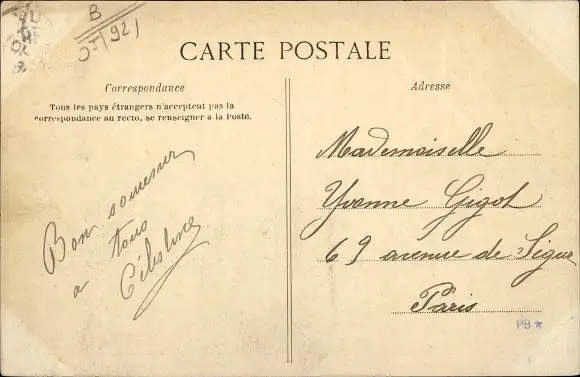 B
CARTE POSTALE
Correspondance
Tous les pays étrangers n'acceptent pas la
correspondance au recto, se renseigner à la Poste.
Bon souvenir
a tous
Célestine
Adresse
Mademoiselle
Yvonne Gigot
69 avenue de Ségur
Paris
PB